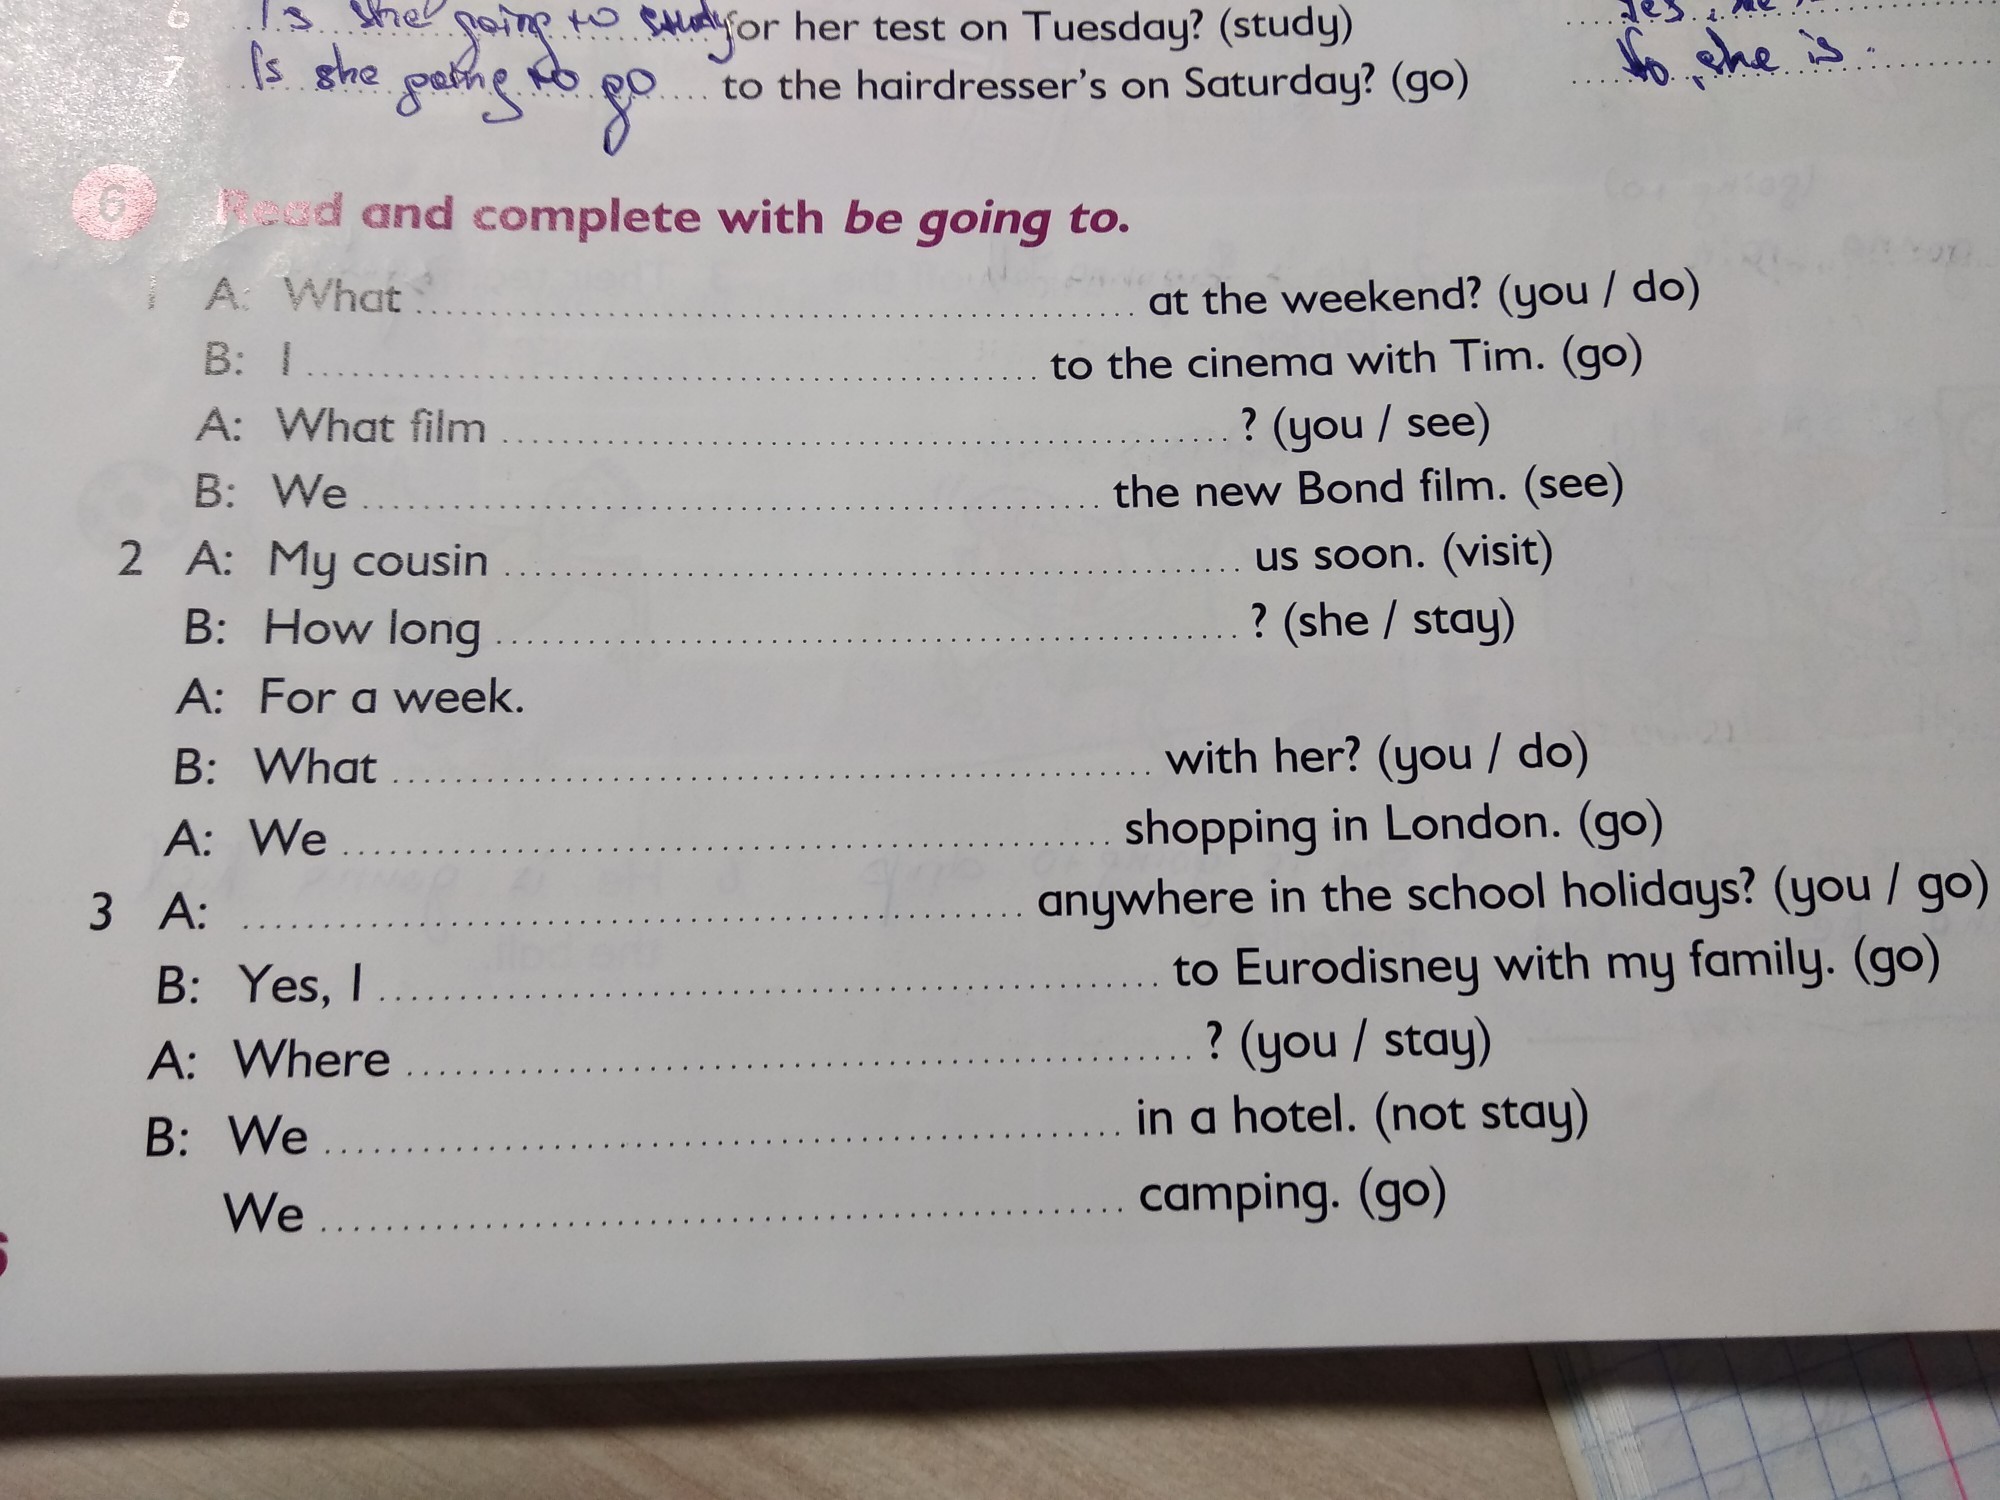 6 Is she going to study for her test on Tuesday? (study) Yes, he
7 Is she going to go .... to the hairdresser's on Saturday? (go) No, she is.
6 Read and complete with be going to.
1 A: What .......... at the weekend? (you / do)
B: I .......... to the cinema with Tim. (go)
A: What film .......... ? (you / see)
B: We .......... the new Bond film. (see)
2 A: My cousin .......... us soon. (visit)
B: How long .......... ? (she / stay)
A: For a week.
B: What .......... with her? (you / do)
A: We .......... shopping in London. (go)
3 A: .......... anywhere in the school holidays? (you / go)
B: Yes, I .......... to Eurodisney with my family. (go)
A: Where .......... ? (you / stay)
B: We .......... in a hotel. (not stay)
We .......... camping. (go)